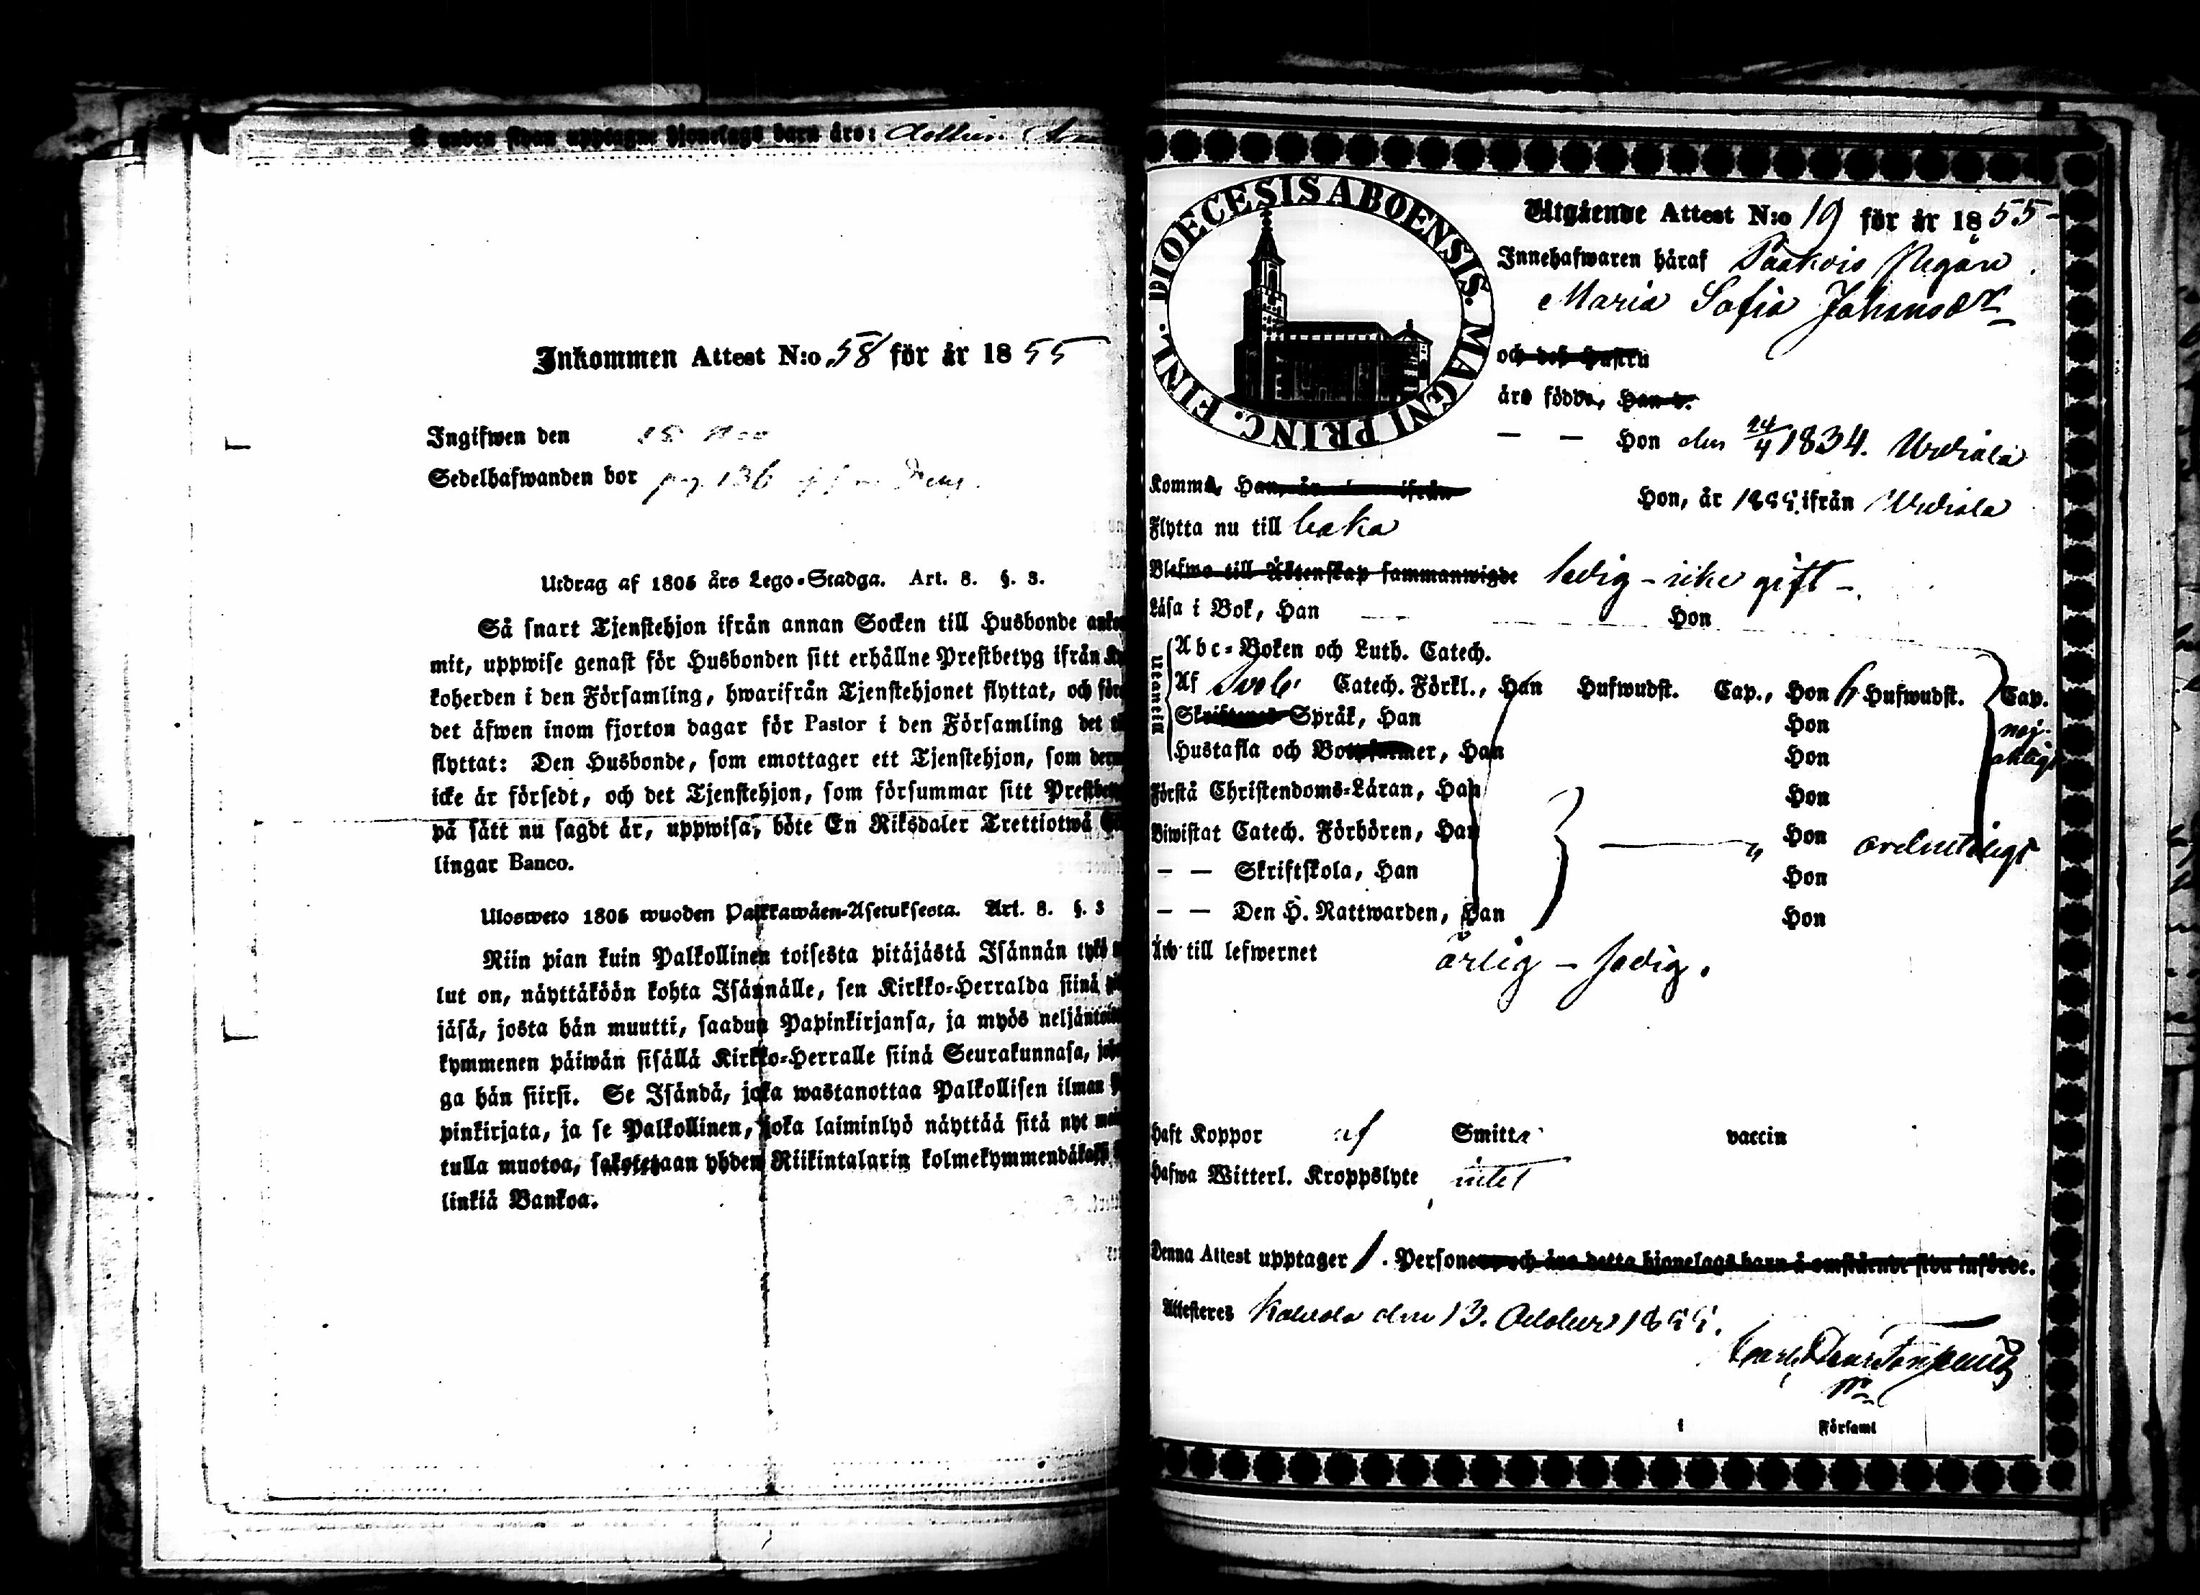 Å andra sidan upptagne hjonelags barn äro:
Inkommen Attest N:o 58 för år 1855
Ingifwen den 15
Sedelhafwanden bor pag. 136
Utdrag af 1805 års Lego-Stadga. Art. 8. §. 3.
Så snart Tjenstehjon ifrån annan Socken till Husbonde
mit, uppwise genast för Husbonden sitt erhållne Prestbetyg ifrån
koherden i den Församling, hwarifrån Tjenstehjonet flyttat, och
det äfwen inom fjorton dagar för Pastor i den Församling det
flyttat: Den Husbonde, som emottager ett Tjenstehjon, som
icke är försedt, och det Tjenstehjon, som försummar sitt
på sätt nu sagdt är, uppwisa, böte En Riksdaler Trettiotwå
lingar Banco.
Ulosweto 1805 wuoden Palkkawäen-Asetuksesta. Art. 8. §. 3
Niin pian kuin Palkollinen toisesta pitäjästä Isännän tykö
lut on, näyttäköön kohta Isännälle, sen Kirkko-Herralda siinä
jäsä, josta hän muutti, saadun Papinkirjansa, ja myös
kymmenen päiwän sisällä Kirkko-Herralle siinä Seurakunnasa,
ga hän siirsi. Se Isändä, joka wastanottaa Palkollisen ilman
pinkirjata, ja se Palkollinen, joka laiminlyö näyttää sitä nyt
tulla muotoa, sakotetaan yhden Riikintalarin
linkiä Bankoa.
DIOECESIS ABOENSIS. MAGNI PRINC. FINL.
Utgående Attest N:o 19 för år 1855
Innehafwaren häraf Pigan
Maria Sofia
och deß hustru
äro födde, Han d.
— — Hon den 24/4 1834. Urdiala
Komma, Han, år ifrån Hon, år 1855 ifrån Urdiala
Flytta nu till baka
Blefwo till Äktenskap sammanwigde ledig - icke gift -
Läsa i Bok, Han Hon
Utantill
Abc-Boken och Luth. Catech.
Af Sveb. Catech. Förkl., Han Hufwudst. Cap., Hon 6 Hufwudst. Cap.
Skriftenes Språk, Han Hon nöj-
Hustafla och Han Hon aktigt
Förstå Christendoms-Läran, Han Hon
Biwistat Catech. Förhören, Han Hon ordenteligt
— — Skriftskola, Han Hon
— — Den H. Nattwarden, Han Hon
Äro till lefwernet ärlig - sedig.
Haft Koppor af Smitta vaccin
Hafwa Witterl. Kroppslyte intet
Denna Attest upptager 1. Personer och äro detta hjonelags barn å omstående sida införde.
Attesteres den 13. October 1855.
i Församl